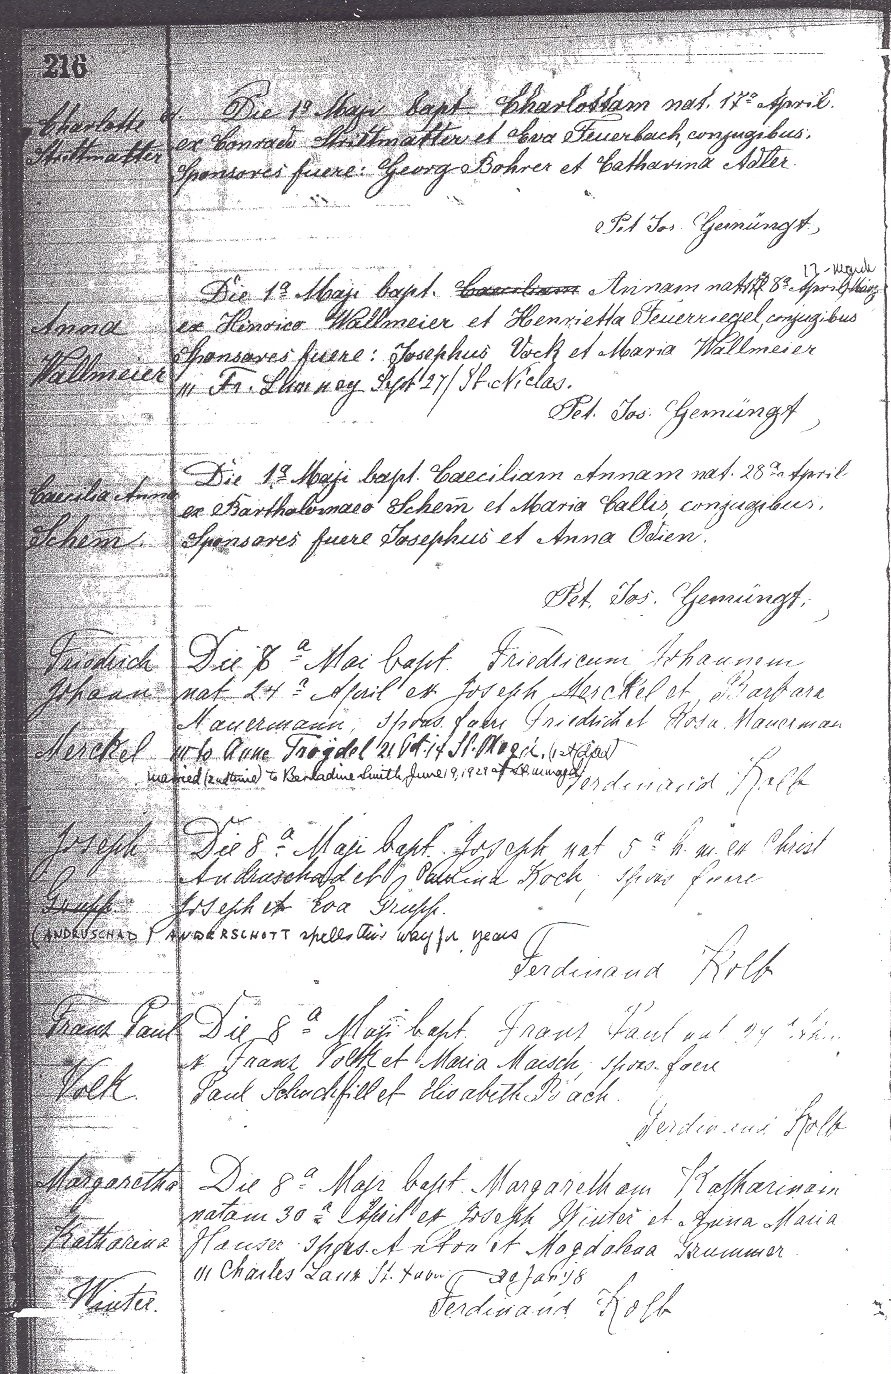 216
Charlotte
Strittmatter
Die 1ª Maji bapt. Charlottam nat. 17ª April.
ex Conrad Strittmatter et Eva Feuerbach, conjugibus.
Sponsores fuere: Georg Bohrer et Catharina Adler.
Pet. Jos. Gemüngt,
Anna
Wallmeier
17-March
Die 1ª Maji bapt. Caeciliam Annam nat. 8ª April
ex Henrico Wallmeier et Henrietta Feuerriegel, conjugibus
Sponsores fuere: Josephus Vock et Maria Wallmeier
m Fr. Lunney Sept 27/ St. Niclas.
Pet. Jos. Gemüngt,
Caecilia Anna
Schem̃.
Die 1ª Maji bapt. Caeciliam Annam nat. 28ª April
ex Bartholomaeo Schem̃ et Maria Callis, conjugibus.
Sponsores fuere Josephus et Anna Odien.
Pet. Jos. Gemüngt,
Friedrich
Johann
Merckel
Die 8ª Mai bapt. Friedricum Johannem
nat 24ª April ex Joseph Merckel et Barbara
Mauermann, spons. fuere Friedrich et Rosa Mauerman
m to Anne Trogdel 21. Oct. 14 St.
married (2nd time) to Bernadine Smith, June 19, 1929 at
Ferdinand Kolb
Joseph
Grupp
(ANDRUSCHAD)
Die 8ª Maji bapt. Joseph nat 5ª h. m. ex Christ
Andruschad et Paulina Koch, spons fuere
Joseph et Eva Grupp.
ANDERSCHOTT spells this way for years
Ferdinand Kolb
Franz Paul
Volk
Die 8ª Maji bapt. Franz Paul nat
ex Franz Volk et Maria Maisch, spons. fuere
Paul Schuchfill et Elisabeth
Ferdinand Kolb
Margaretha
Katharina
Winter.
Die 8ª Maji bapt. Margaretham Katharinam
natam 30ª April ex Joseph Winter et Anna Maria
Hauser spons. Anton et Magdalena Grummer
m Charles Laux St. 20 Jan 18
Ferdinand Kolb